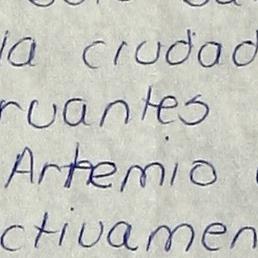 la ciudad
rvantes
Artemio
ctivamen